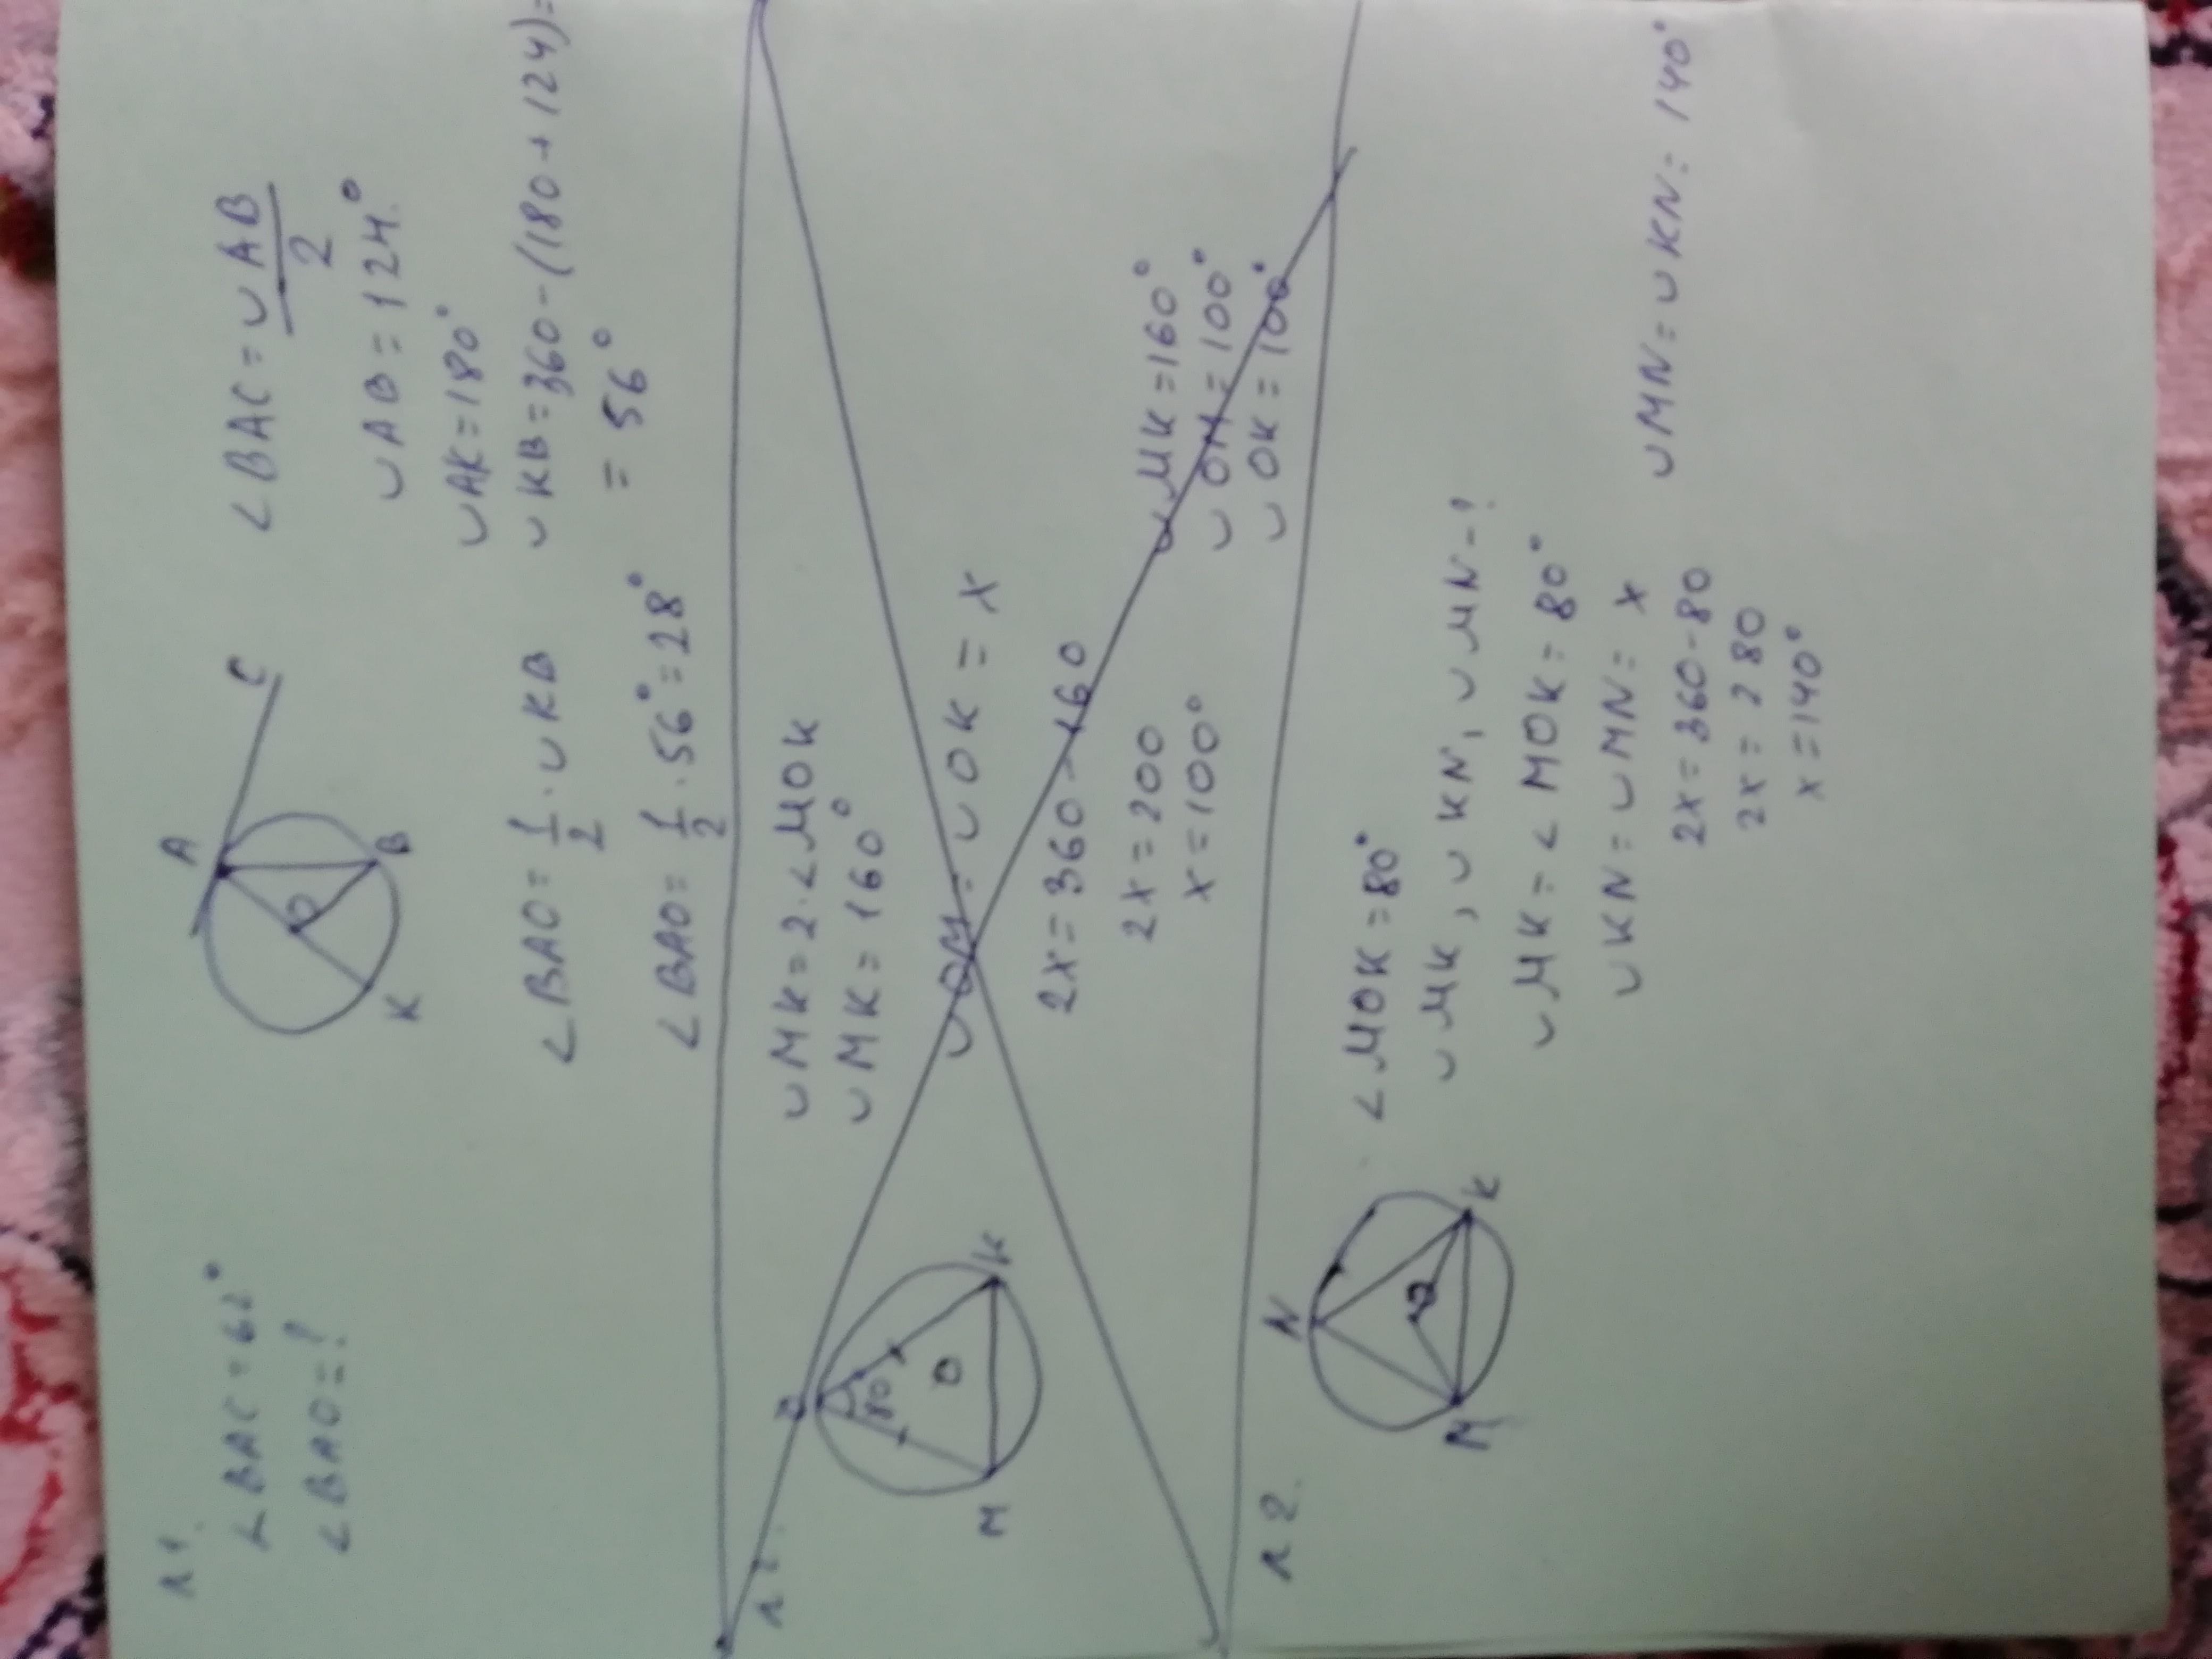 N1.
∠BAC=62°
∠BAO=?
A
C
O
B
K
∠BAC=∪AB/2
∪AB=124°
∪AK=180°
∪KB=360-(180+124)=
=56°
∠BAO=1/2·∪KB
∠BAO=1/2·56°=28°
N2.
O
80
O
M
K
∪MK=2·∠MOK
∪MK=160°
∪OM=∪OK=x
2x=360-160
2x=200
x=100°
∪MK=160°
∪OM=100°
∪OK=100°
N2.
N
O
M
K
∠MOK=80°
∪MK, ∪KN, ∪MN-?
∪MK=∠MOK=80°
∪KN=∪MN=x
2x=360-80
2x=280
x=140°
∪MN=∪KN=140°